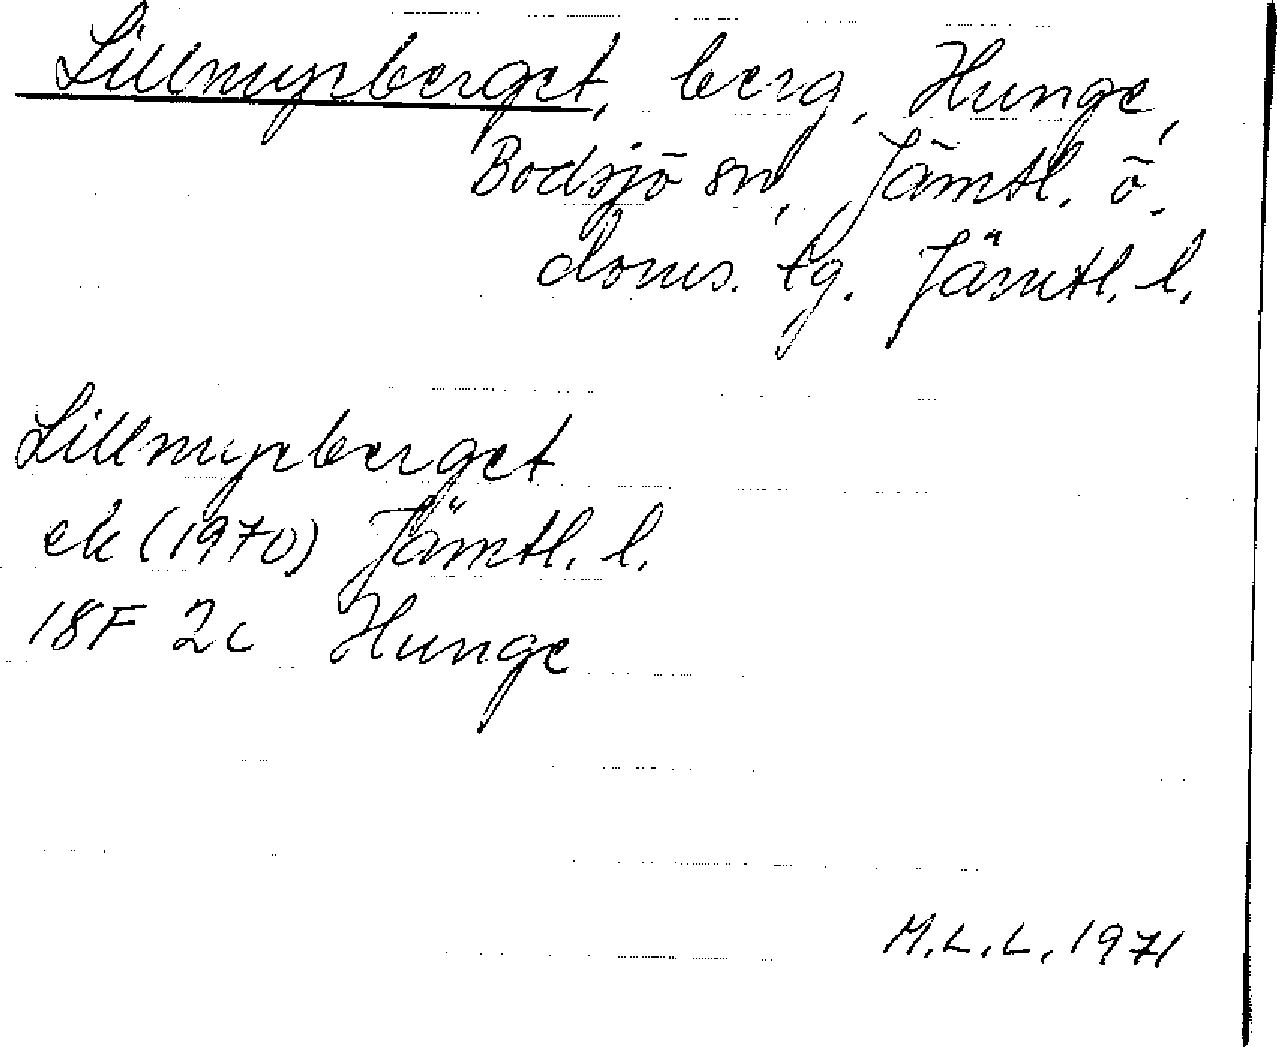 Lillmyrberget, berg, Hunge,
Bodsjö sn, Jämtl. ö.
doms. tg. Jämtl. l.
Lillmyrberget
ek (1970) Jämtl. l.
18F 2c Hunge
M.L.L. 1971